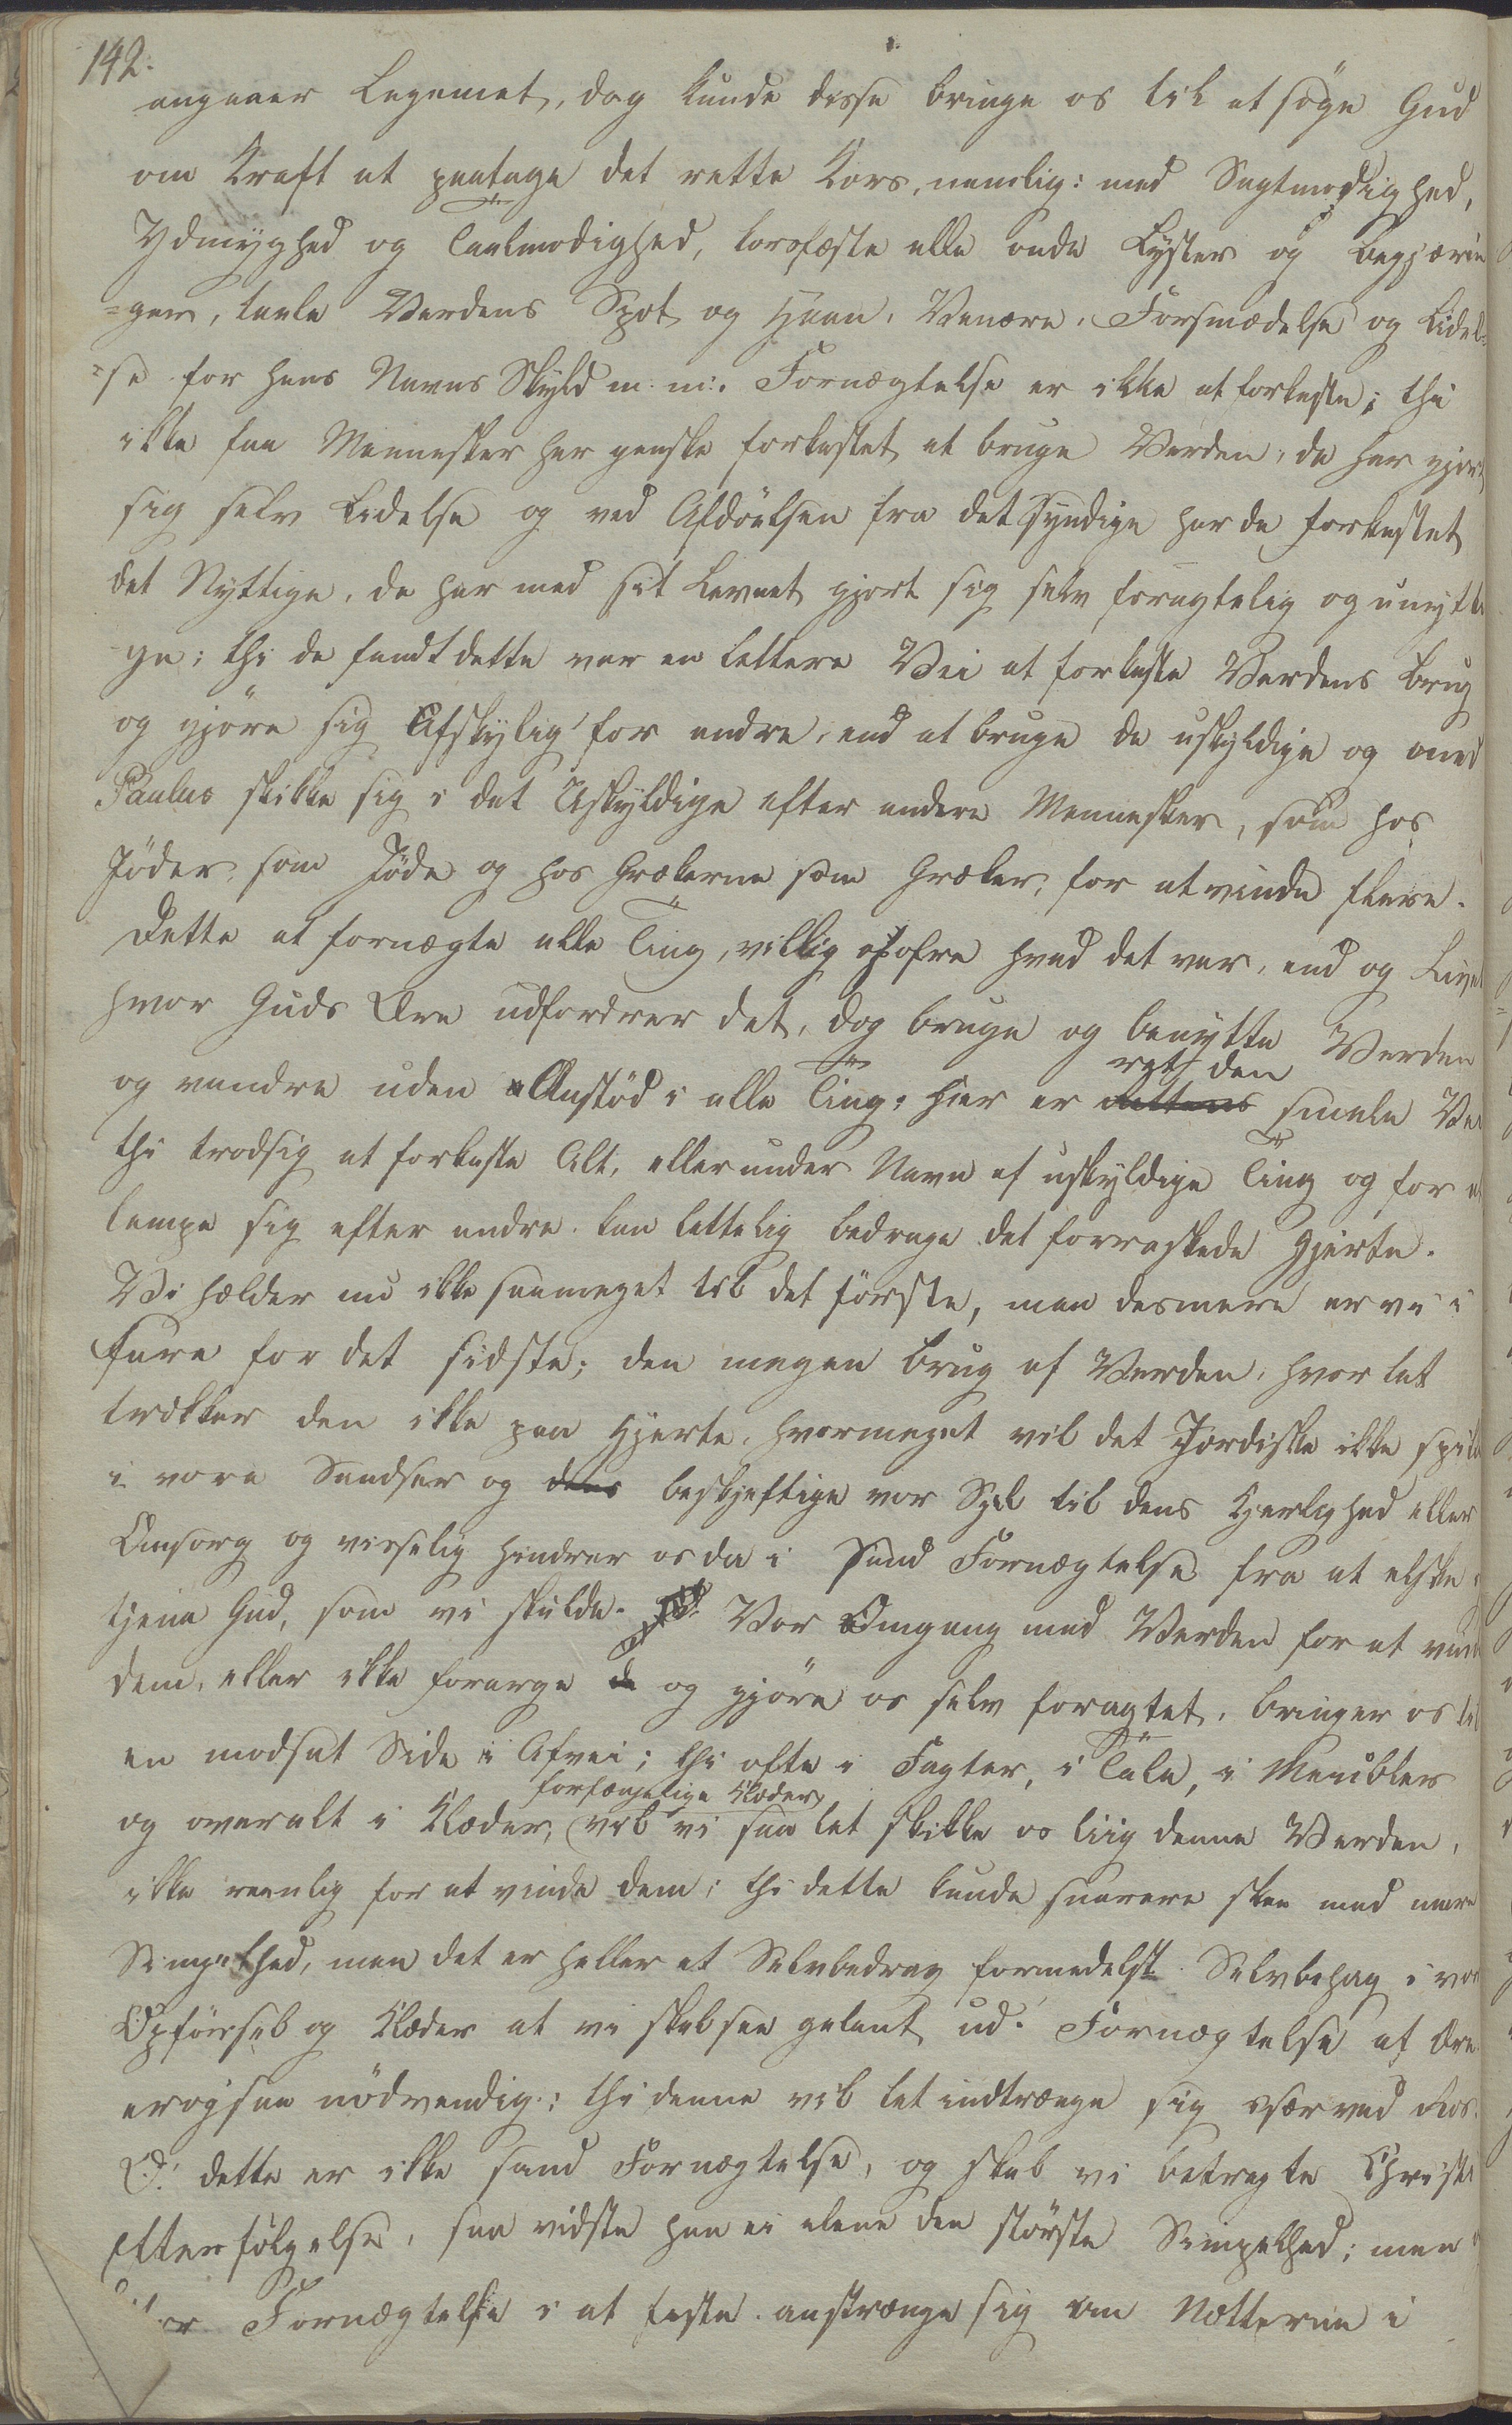 142.
angaaer Legemet, dog kunde disse bringe os til at søge Gud
om Kraft at paatage det rette Kors, nemlig: med Sagtmodighed,
Ydmyghed og Taalmodighed, korsfæste alle onde Lyster og Begjærin
=ger, taale Verdens Spot og Haan, Vanære, Forsmædelse og Lidel=
=se for hans Navns Skyld m: m:. Fornægtelse er ikke at forkaste; thi
ikke faa Mennesker har ganske forkastet at bruge Verden, de har gjort
sig selv Lidelse og ved Afdöelsen fra det syndige har de forkastet
det Nyttige, de har med sit Levnet gjort sig selv foragtelig og unytti
ge; thi de fandt dette var en lettere Vei at forkaste Verdens Brug
og gjöre sig Afskylig for andre, end at bruge de uskyldige og med
Paulus skikke sig i det Uskyldige efter andere Mennesker, som hos
Jöder som Jöde og hos Grækerne som Græker, for at vinde flere.
Dette at fornægte alle Ting, villig opofre hvad det var, end og Livet
hvor Guds Ære udfordrer det, dog bruge og benytte Verden
og vandre uden Anstöd i alle Ting: hier er ret den smale Ve
thi trodsig at forkaste Alt, eller under Navn af uskyldige Ting og for at
lempe sig efter andre kan lettelig bedrage det forraskede Hjerte.
Vi hælder nu ikke saameget til det förste, men desmere er vi i
fare for det sidste; den megen Brug af Verden, hvor let
trækker den ikke paa Hjerte, hvormeget vil det Jordiske ikke spille
i vore Sandser og beskjeftige vor Sjel til dens Kjerlighed eller
Omsorg og visselig hindrer os da i sand Fornægtelse fra at elske
tjene Gud, som vi skulde. Vor Omgang med Verden for at vinde
dem, eller ikke forarge og gjöre os selv foragtet, bringer os til
en modsat Side i Afvei; thi ofte i Fagter, i Tale, i Meubler
forfængelige Klæder
og overalt i Klæder, vil vi saa let skikke os liig denne Verden,
ikke reenlig for at vinde dem; thi dette kunde snarere skee med mere
Simpelhed, men det er heller et Selvbedrag formedelst Selvbehag i vor
Opförsel og Klæder at vi skal see galant ud. Fornægtelse af Ære
er ogsaa nödvendig; thi denne vil let indtrænge sig især ved Ros.
O! dette er ikke sand Fornægtelse, og skal vi betragte Christi
Efterfölgelse, saa vidste han ei alene den störste Simpelhed; men
Fornægtelse i at faste anstrænge sig om Nætterne i